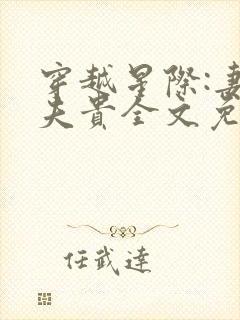 穿越星際:妻
夫貴全文免
任武達